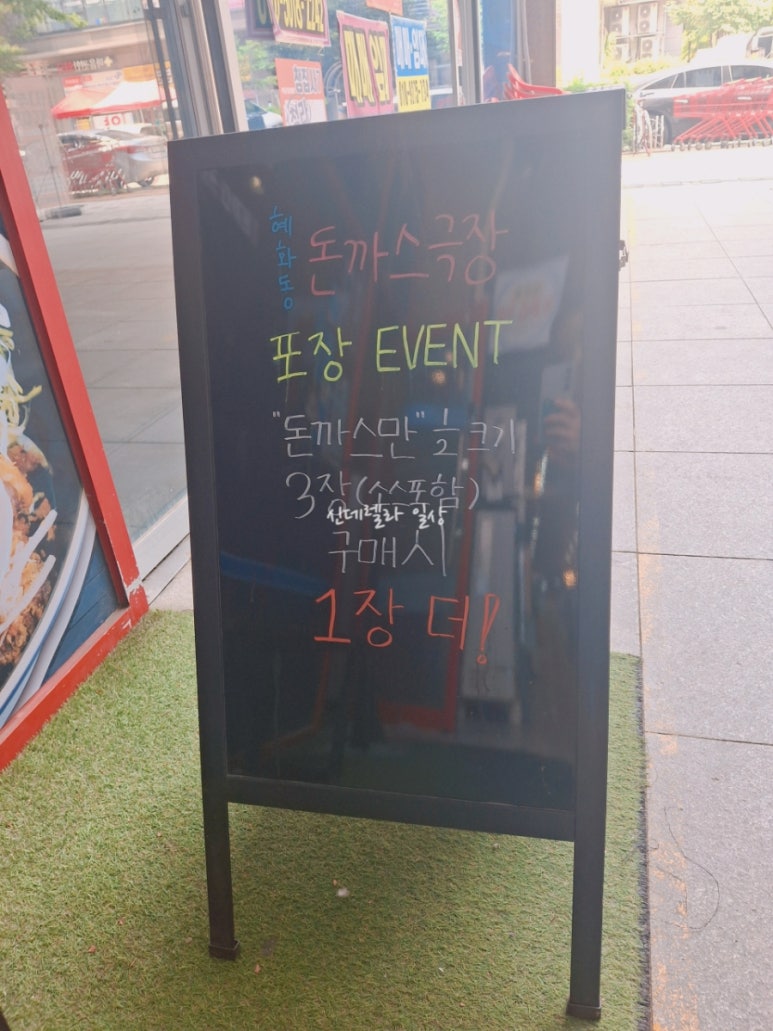 혜화동 돈까스극장
포장 EVENT
"돈까스만" 놀크기
3장(소스포함)
신데렐라 일상
구매시
1장 더!
매매 임대